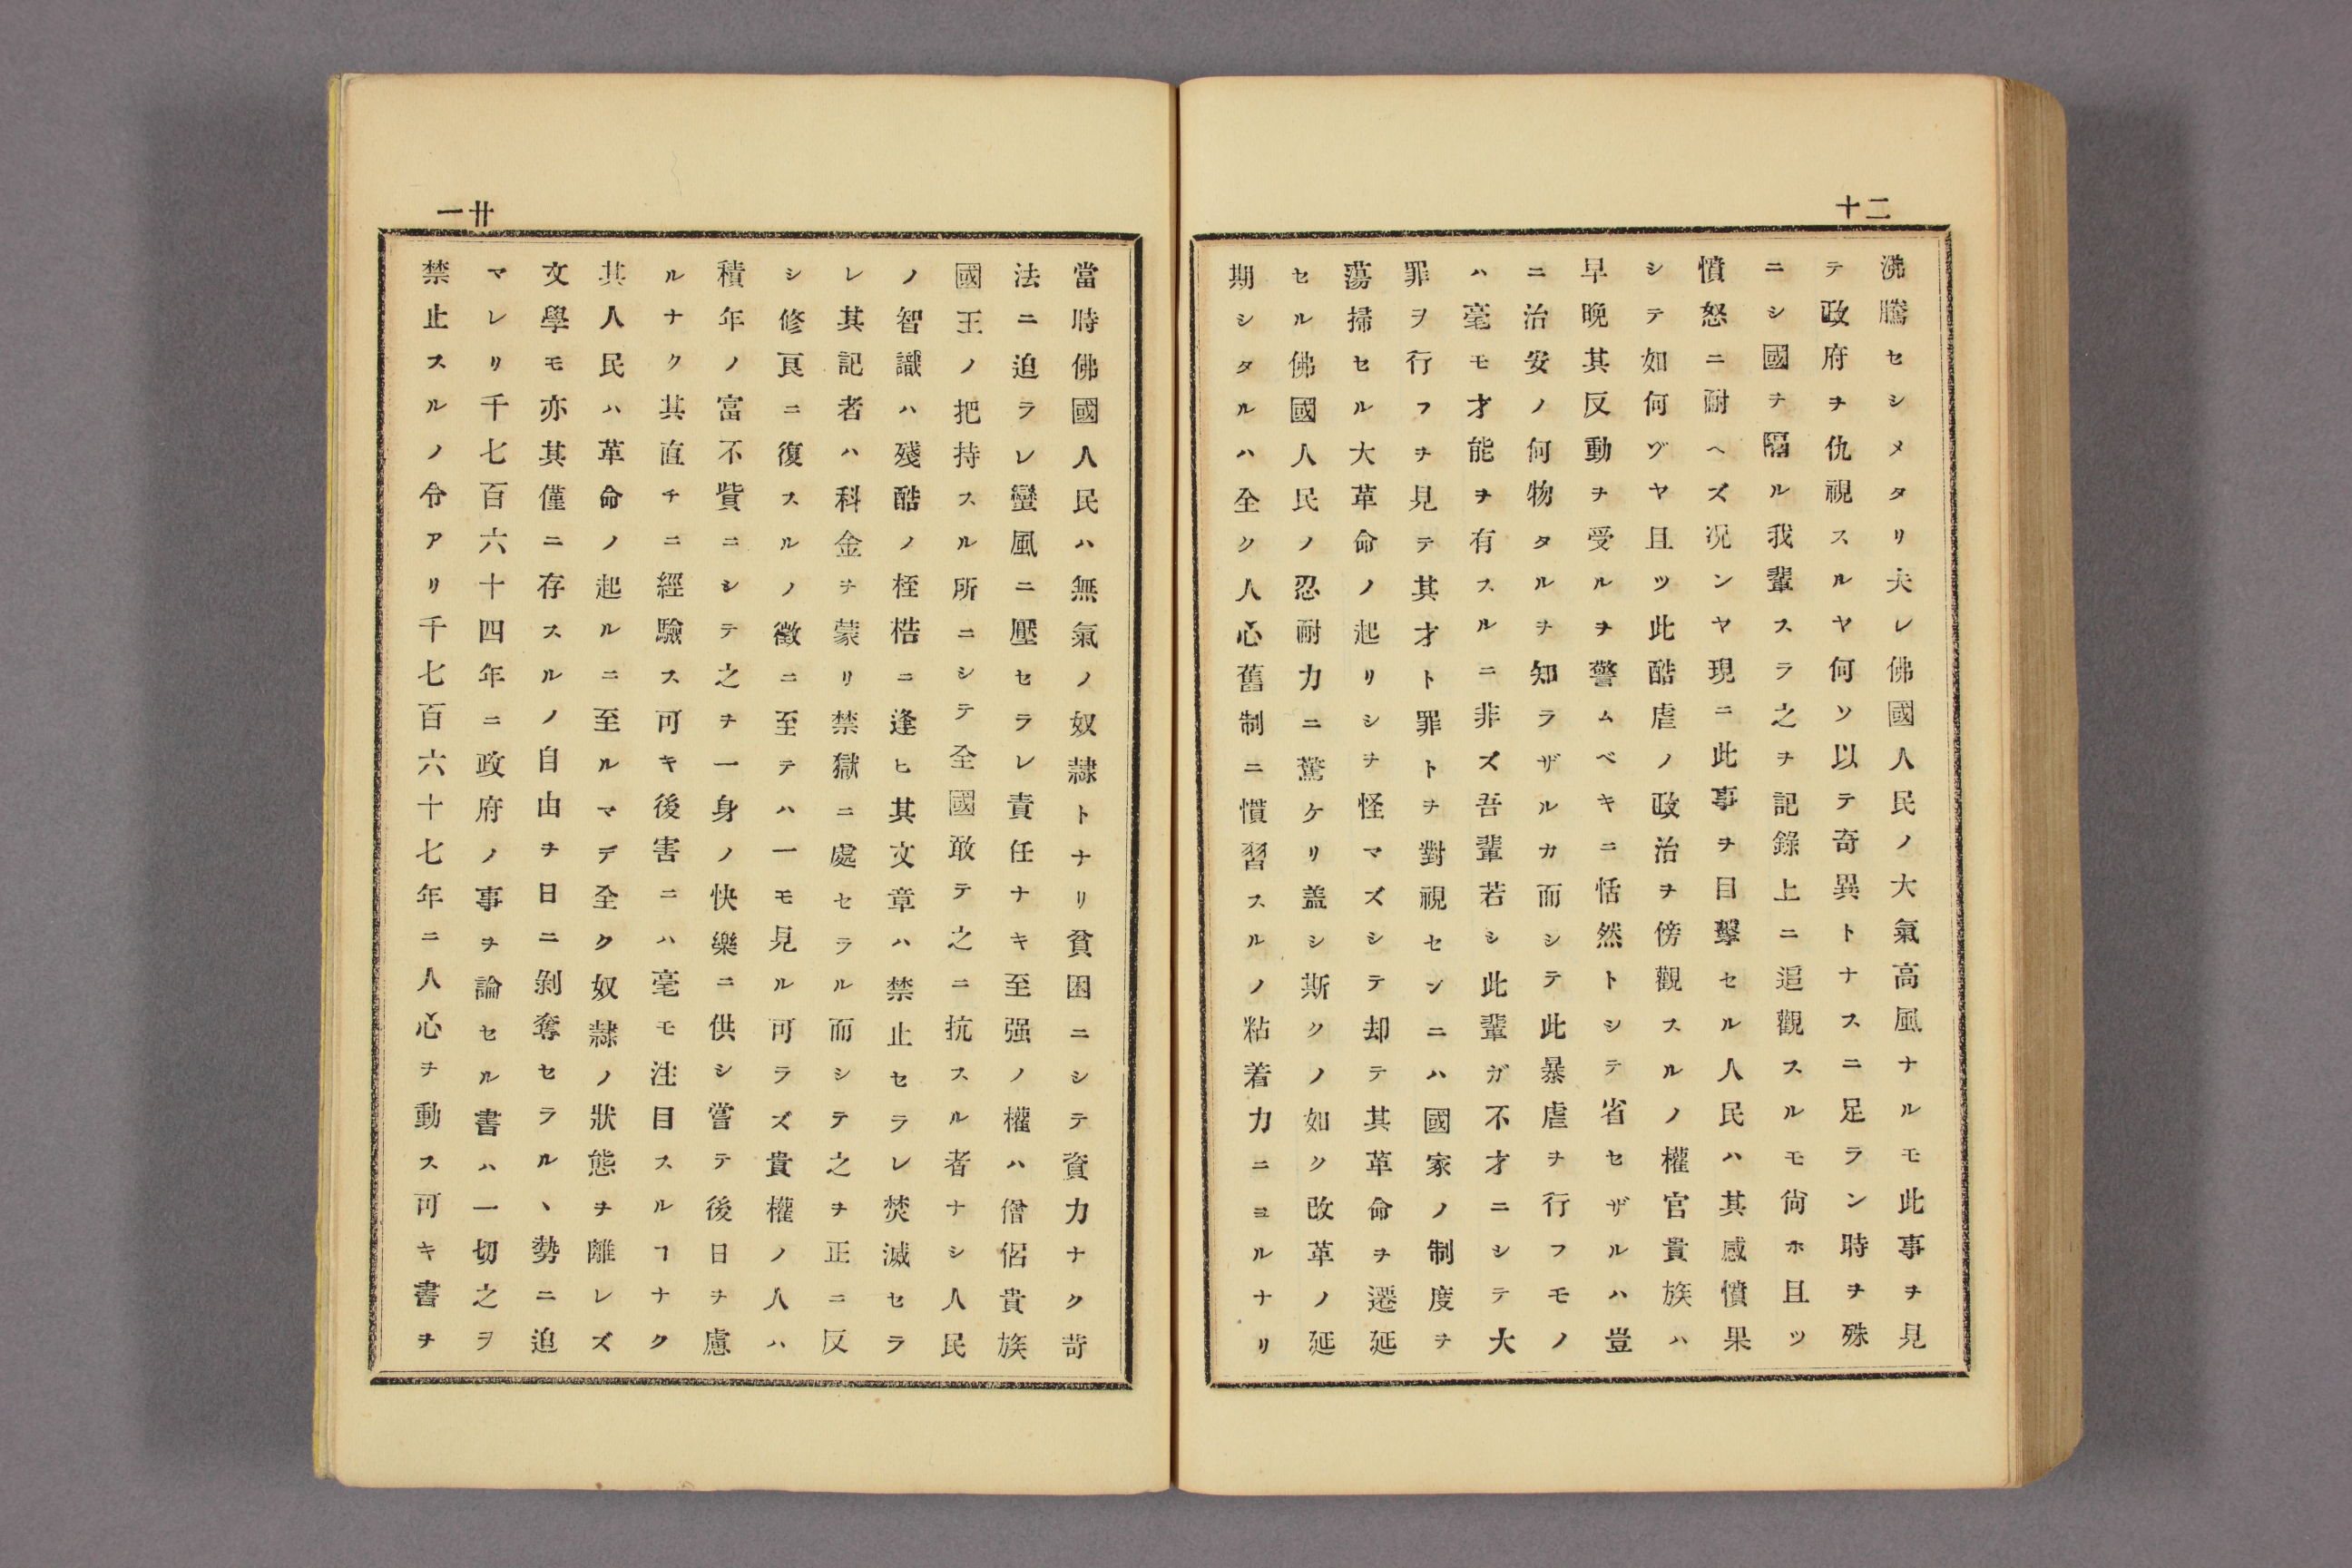 二十
沸騰セシメタリ夫レ佛國人民ノ大氣高風ナルモ此事ヲ見
テ政府ヲ仇視スルヤ何ソ以テ奇異トナスニ足ラン時ヲ殊
ニシ國ヲ隔ル我輩スラ之ヲ記錄上ニ追觀スルモ尙ホ且ツ
憤怒ニ耐ヘズ况ンヤ現ニ此事ヲ目擊セル人民ハ其感憤果
シテ如何ヅヤ且ツ此酷虐ノ政治ヲ傍觀スルノ權官貴族ハ
早晩其反動ヲ受ルヲ警ムベキニ恬然トシテ省セザルハ豈
ニ治安ノ何物タルヲ知ラザルカ而シテ此暴虐ヲ行フモノ
ハ毫モ才能ヲ有スルニ非ズ吾輩若シ此輩ガ不才ニシテ大
罪ヲ行フヲ見テ其才ト罪トヲ對視センニハ國家ノ制度ヲ
蕩掃セル大革命ノ起リシヲ怪マズシテ却テ其革命ヲ遷延
セル佛國人民ノ忍耐力ニ驚ケリ盖シ斯クノ如ク改革ノ延
期シタルハ全ク人心舊制ニ慣習スルノ粘着力ニヨルナリ
廿一
當時佛國人民ハ無氣ノ奴隷トナリ貧困ニシテ資力ナク苛
法ニ迫ラレ蠻風ニ壓セラレ責任ナキ至强ノ權ハ僧侶貴族
國王ノ把持スル所ニシテ全國敢テ之ニ抗スル者ナシ人民
ノ智識ハ殘酷ノ桎梏ニ逢ヒ其文章ハ禁止セラレ焚滅セラ
レ其記者ハ科金ヲ蒙リ禁獄ニ處セラル而シテ之ヲ正ニ反
シ修良ニ復スルノ徵ニ至テハ一モ見ル可ラズ貴權ノ人ハ
積年ノ富不貲ニシテ之ヲ一身ノ快樂ニ供シ嘗テ後日ヲ慮
ルナク其直チニ經驗ス可キ後害ニハ毫モ注目スルヿナク
其人民ハ革命ノ起ルニ至ルマデ全ク奴隷ノ狀態ヲ離レズ
文學モ亦其僅ニ存スルノ自由ヲ日ニ剝奪セラルヽ勢ニ迫
マレリ千七百六十四年ニ政府ノ事ヲ論セル書ハ一切之ヲ
禁止スルノ令アリ千七百六十七年ニ人心ヲ動ス可キ書ヲ